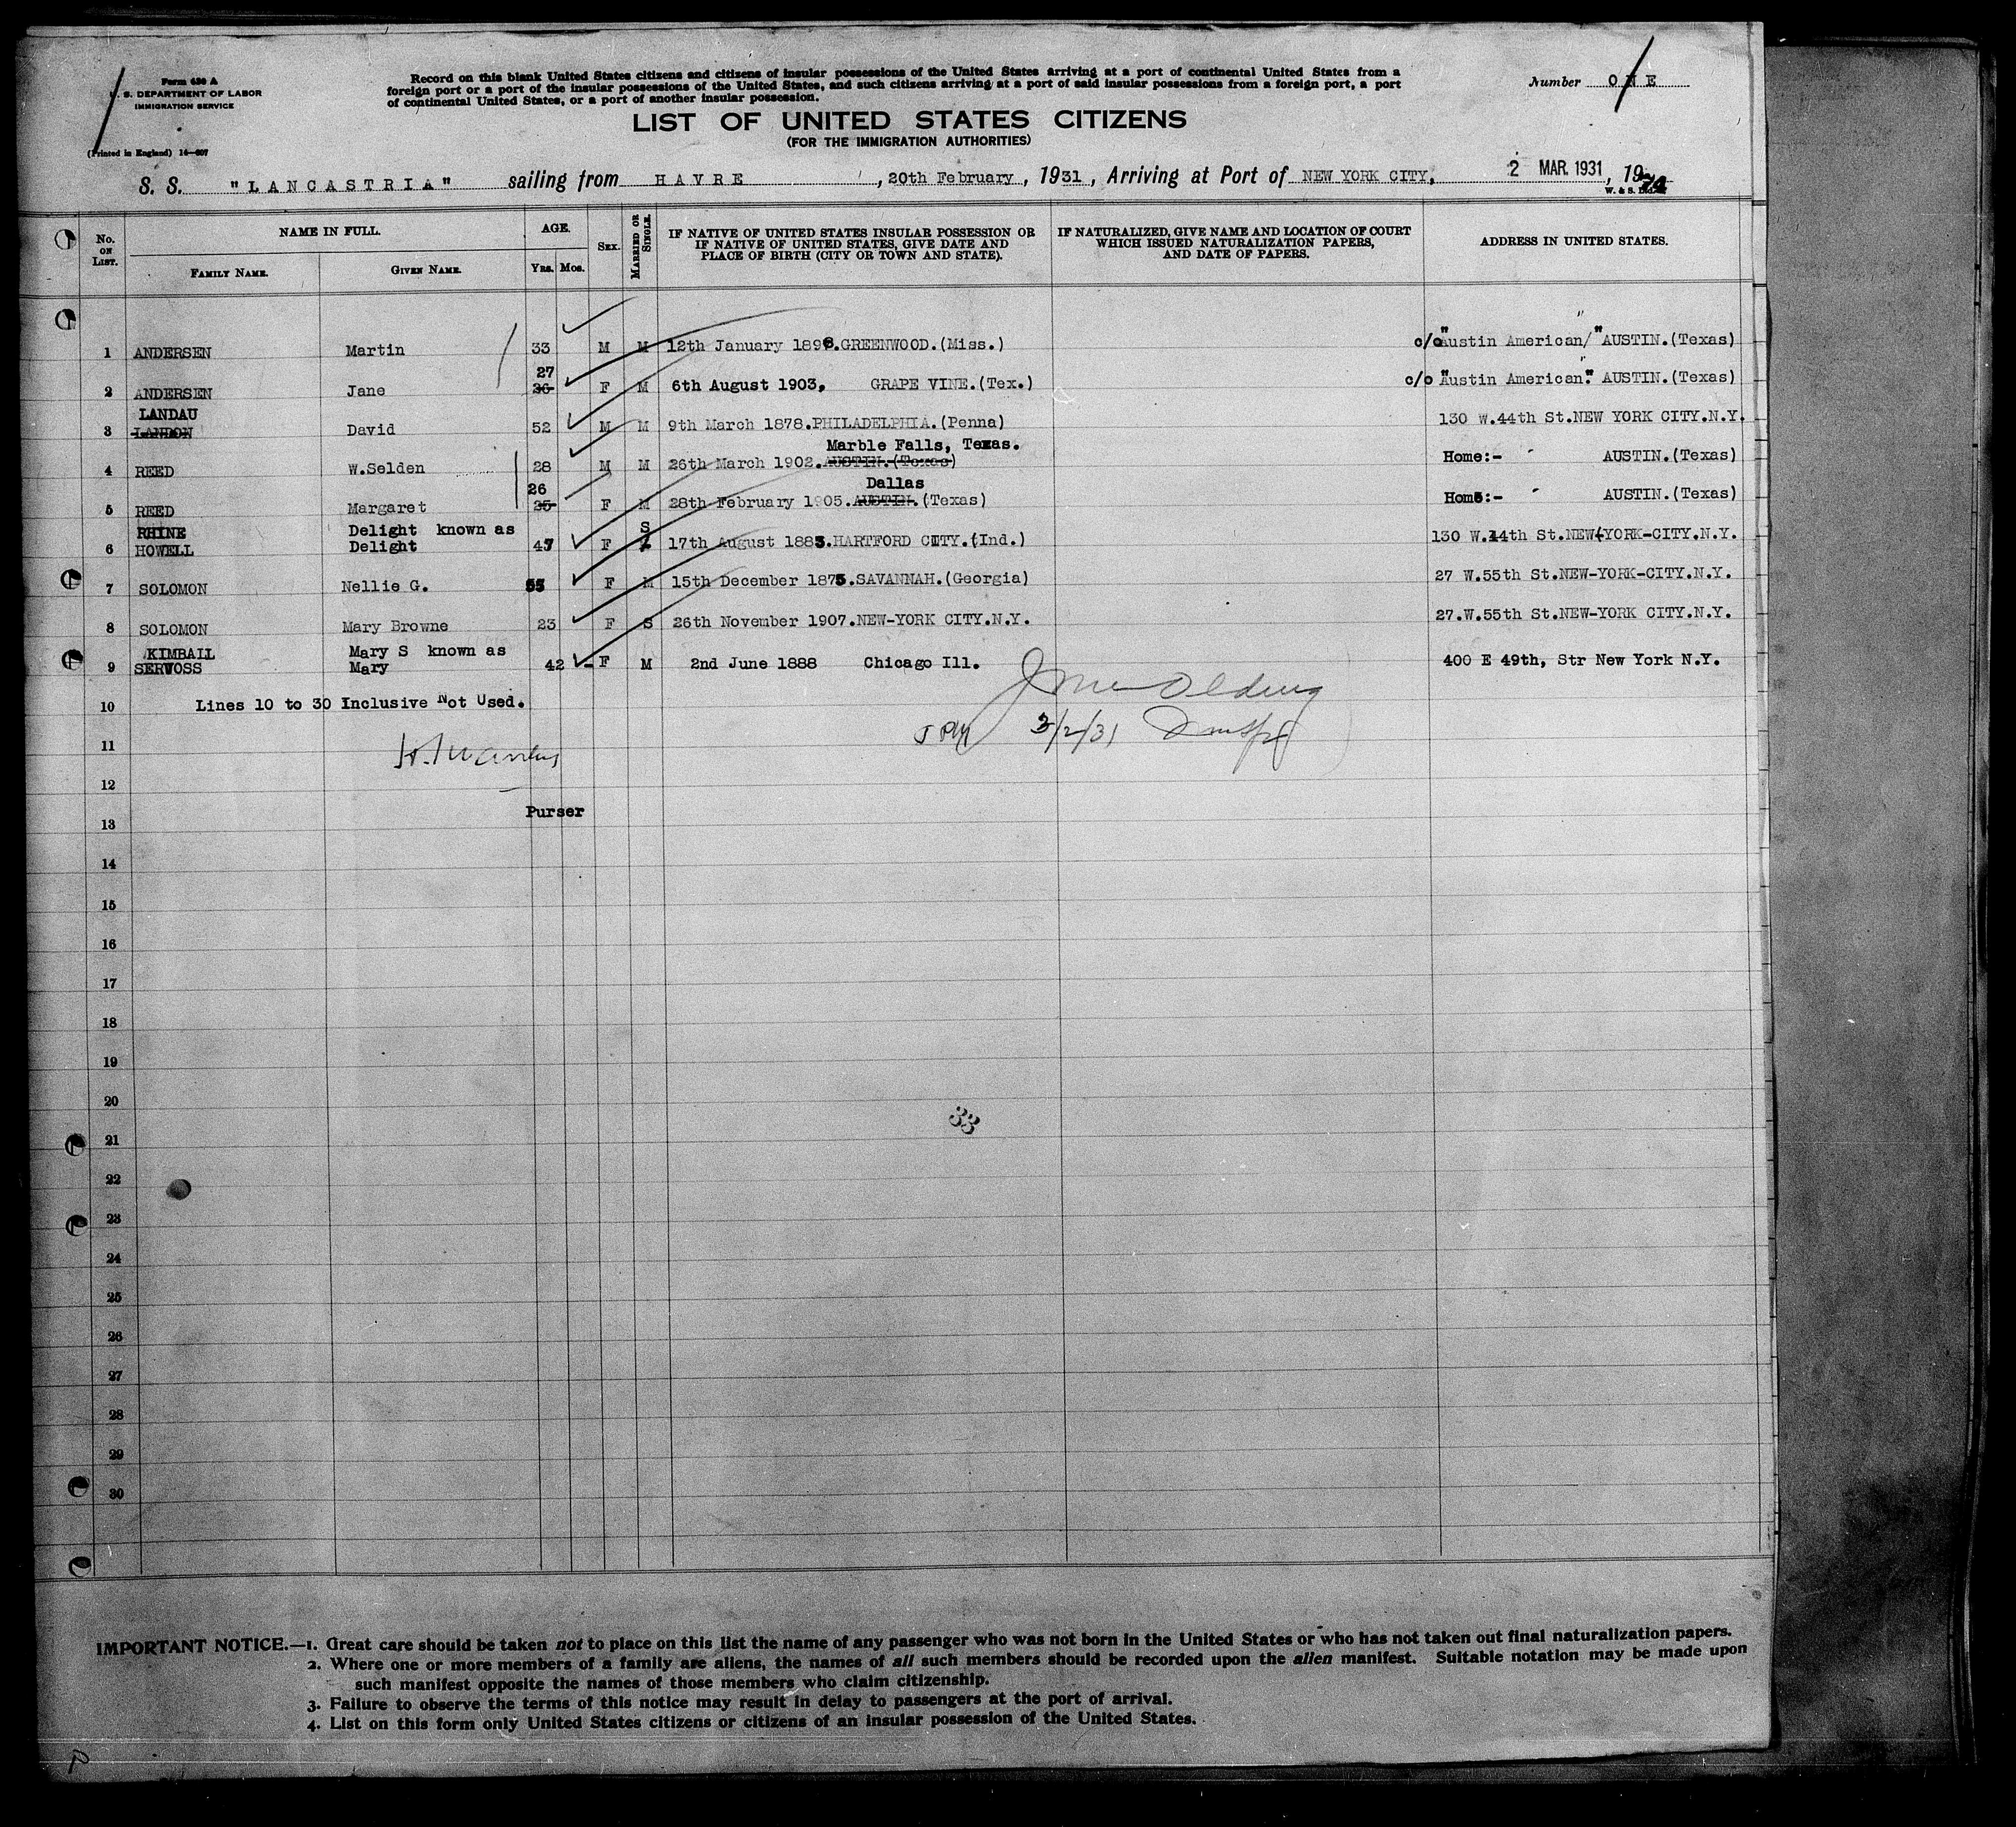 Form 430 A
U. S. DEPARTMENT OF LABOR
IMMIGRATION SERVICE
(Printed in England) 14—607
Record on this blank United States citizens and citizens of insular possessions of the United States arriving at a port of continental United States from a
foreign port or a port of the insular possessions of the United States, and such citizens arriving at a port of said insular possessions from a foreign port, a port
of continental United States, or a port of another insular possession.
Number ONE
LIST OF UNITED STATES CITIZENS
(FOR THE IMMIGRATION AUTHORITIES)
S. S. "LANCASTRIA" sailing from HAVRE, 20th February, 1931, Arriving at Port of NEW YORK CITY, 2 MAR. 1931, 19
W. & S. Ltd.
No. ON LIST. NAME IN FULL. FAMILY NAME. GIVEN NAME. AGE. YRS. MOS. SEX. MARRIED OR SINGLE. IF NATIVE OF UNITED STATES INSULAR POSSESSION OR IF NATIVE OF UNITED STATES, GIVE DATE AND PLACE OF BIRTH (CITY OR TOWN AND STATE). IF NATURALIZED, GIVE NAME AND LOCATION OF COURT WHICH ISSUED NATURALIZATION PAPERS, AND DATE OF PAPERS. ADDRESS IN UNITED STATES.
1 ANDERSEN Martin 33 M M 12th January 1898.GREENWOOD.(Miss.) c/o "Austin American/" AUSTIN.(Texas)
27
2 ANDERSEN Jane 26 F M 6th August 1903, GRAPE VINE.(Tex.) c/o "Austin American." AUSTIN.(Texas)
LANDAU
3 LANDON David 52 M M 9th March 1878.PHILADELPHIA.(Penna) 130 W.44th St.NEW YORK CITY.N.Y.
Marble Falls, Texas.
4 REED W.Selden 28 M M 26th March 1902.AUSTIN.(Texas) Home:- AUSTIN.(Texas)
26 Dallas
5 REED Margaret 25 F M 28th February 1905.AUSTIN.(Texas) Home:- AUSTIN.(Texas)
RHINE Delight known as S
6 HOWELL Delight 47 F 17th August 1883.HARTFORD CITY.(Ind.) 130 W.44th St.NEW-YORK-CITY.N.Y.
7 SOLOMON Nellie G. 55 F M 15th December 1875.SAVANNAH.(Georgia) 27 W.55th St.NEW-YORK-CITY.N.Y.
8 SOLOMON Mary Browne 23 F S 26th November 1907.NEW-YORK CITY.N.Y. 27.W.55th St.NEW-YORK CITY.N.Y.
KIMBALL Mary S known as
9 SERVOSS Mary 42 F M 2nd June 1888 Chicago Ill. 400 E 49th, Str New York N.Y.
10 Lines 10 to 30 Inclusive Not Used.
3/2/31
11
12
Purser
13
14
15
16
17
18
19
20
33
21
22
23
24
25
26
27
28
29
30
IMPORTANT NOTICE.—1. Great care should be taken not to place on this list the name of any passenger who was not born in the United States or who has not taken out final naturalization papers.
2. Where one or more members of a family are aliens, the names of all such members should be recorded upon the alien manifest. Suitable notation may be made upon
such manifest opposite the names of those members who claim citizenship.
3. Failure to observe the terms of this notice may result in delay to passengers at the port of arrival.
4. List on this form only United States citizens or citizens of an insular possession of the United States.